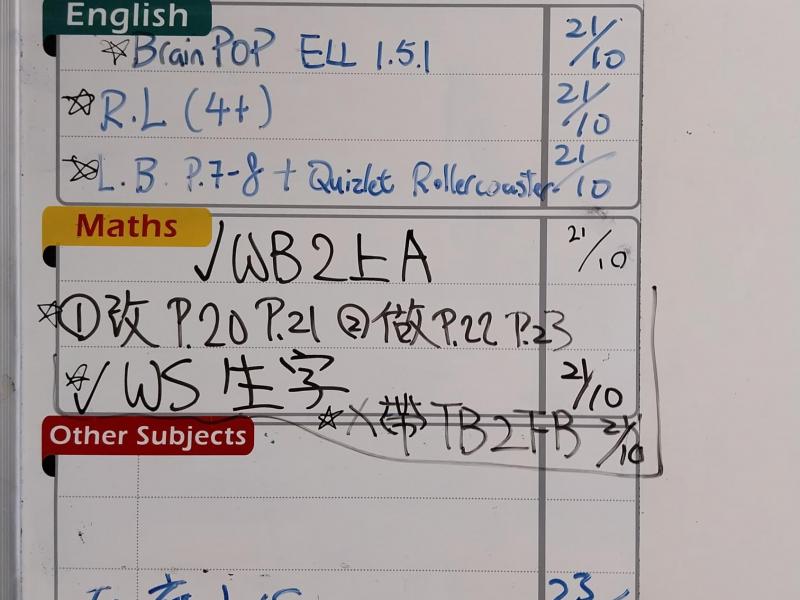 English
☆ BrainPOP ELL 1.5.1 21/10
☆ R.L (4+) 21/10
☆ L.B. P.7-8 + Quizlet Rollercoaster 21/10
Maths
√ WB2上A 21/10
☆ ①改 P.20 P.21 ②做 P.22 P.23
☆ √ WS 生字 21/10
☆ X (帶) TB2下B 21/10
Other Subjects
23